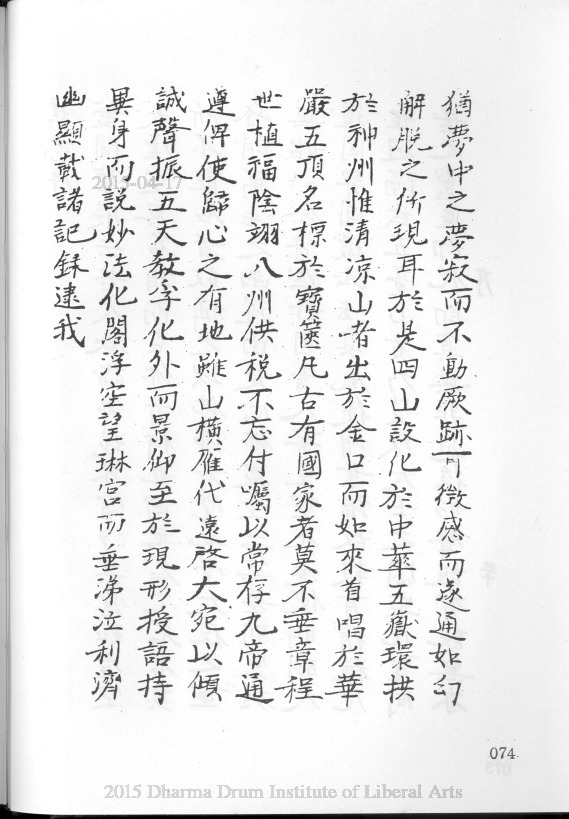 猶夢中之夢寂而不動厥跡可徵感而遂通如幻
解脫之所現耳於是四山設化於中華五嶽環拱
於神州惟清凉山者出於金口而如來首唱於華
嚴五頂名標於寶篋凡古有國家者莫不垂章程
世植福陰翊八州供稅不忘付囑以常存九帝通
遵俾使歸心之有地雖山横雁代遠啓大宛以傾
誠聲振五天教孚化外而景仰至於現形授語持
異身而說妙法化閣浮空望琳宮而垂涕泣利濟
幽顯載諸記錄逮我
074
2015-04-17
2015 Dharma Drum Institute of Liberal Arts